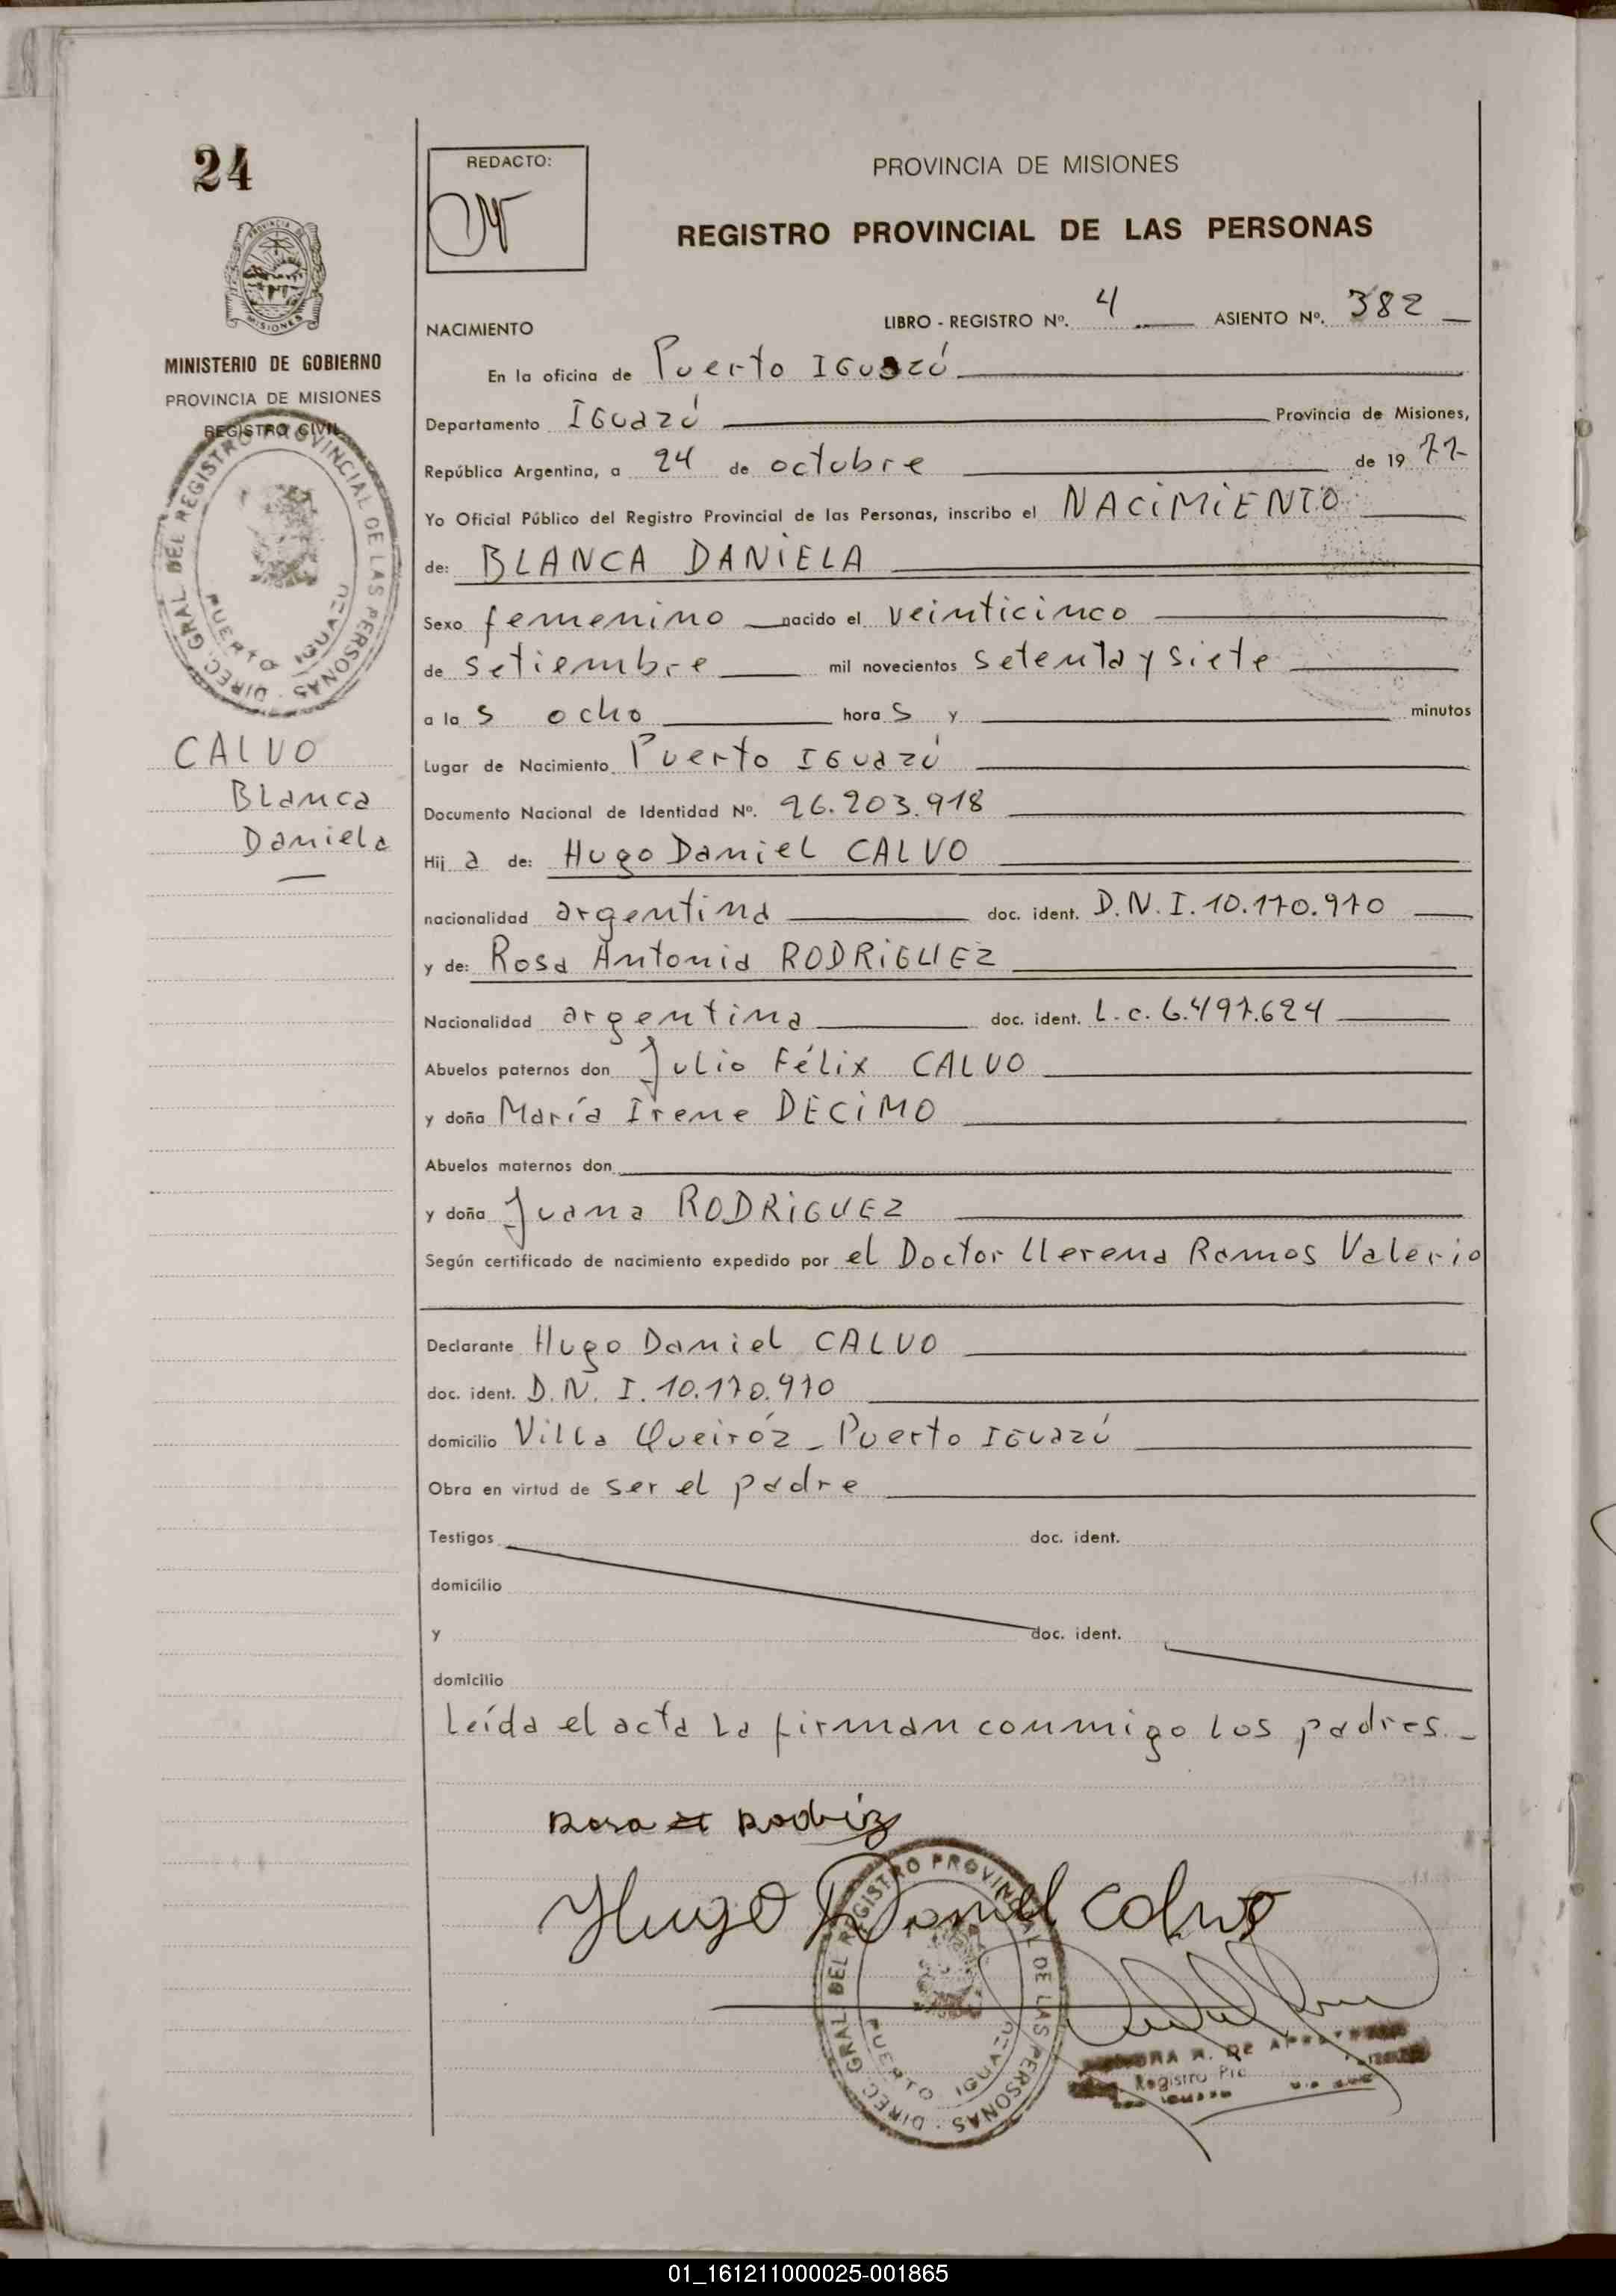 24
REDACTO:
PROVINCIA DE MISIONES
REGISTRO PROVINCIAL DE LAS PERSONAS
PROVINCIA DE
MISIONES
MINISTERIO DE GOBIERNO
PROVINCIA DE MISIONES
REGISTRO CIVIL
DIREC. GRAL DEL REGISTRO PROVINCIAL DE LAS PERSONAS
PUERTO IGUAZU
CALVO
Blanca
Daniela
LIBRO - REGISTRO Nº. 4 ASIENTO Nº. 382
NACIMIENTO
En la oficina de Puerto Iguazú
Departamento Iguazú Provincia de Misiones,
República Argentina, a 24 de octubre de 19 77
Yo Oficial Público del Registro Provincial de las Personas, inscribo el NACIMIENTO
de: BLANCA DANIELA
Sexo femenino nacido el veinticinco
de setiembre mil novecientos setenta y siete
a la s ocho hora s y minutos
Lugar de Nacimiento Puerto Iguazú
Documento Nacional de Identidad Nº. 26.203.918
Hij a de: Hugo Daniel CALVO
nacionalidad argentina doc. ident. D.N.I. 10.170.970
y de: Rosa Antonia RODRIGUEZ
Nacionalidad argentina doc. ident. L.c. 6.497.624
Abuelos paternos don Julio Félix CALVO
y doña María Irene DECIMO
Abuelos maternos don
y doña Juana RODRIGUEZ
Según certificado de nacimiento expedido por el Doctor Llerena Ramos Valerio
Declarante Hugo Daniel CALVO
doc. ident. D.N.I. 10.170.970
domicilio Villa Queiróz - Puerto Iguazú
Obra en virtud de ser el padre
Testigos doc. ident.
domicilio
y doc. ident.
domicilio
Leída el acta la firman conmigo los padres.-
Rosa
Hugo Daniel Calvo
DIREC. GRAL DEL REGISTRO PROVINCIAL DE LAS PERSONAS
PUERTO IGUAZU
Registro
01_161211000025-001865